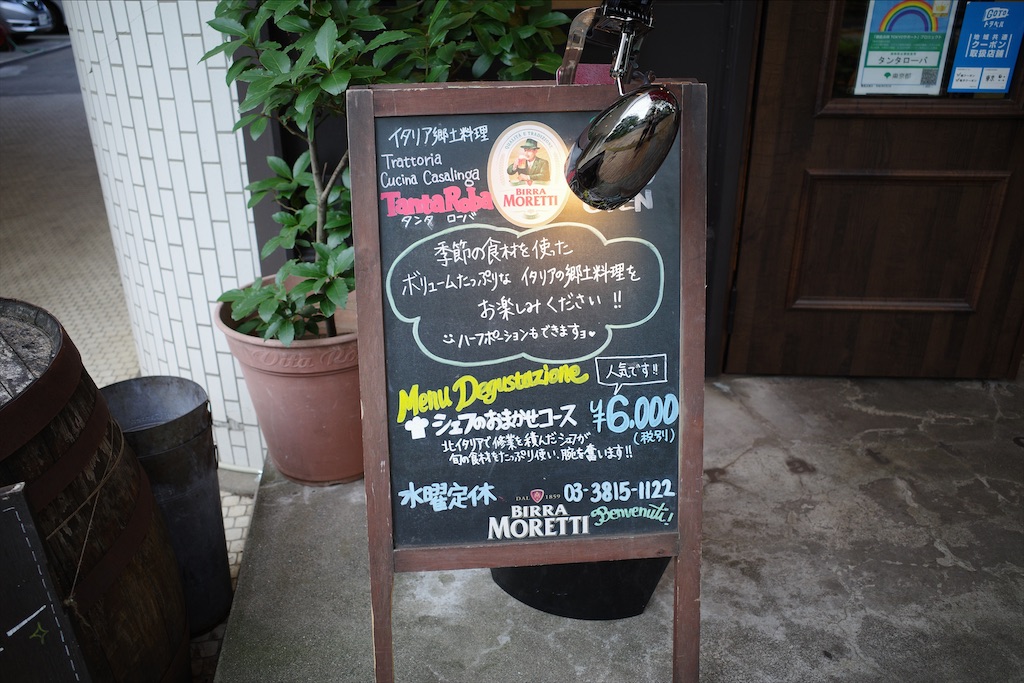 イタリア郷土料理
Trattoria
Cucina Casalinga
TantaRoba
タンタ ローバ
BIRRA
MORETTI
季節の食材を使った
ボリュームたっぷりな イタリアの郷土料理を
お楽しみください!!
ハーフポーションもできますョ♥
Menu Degustazione
人気です!!
シェフのおまかせコース ¥6.000
(税別)
北イタリアで修業を積んだシェフが
旬の食材をたっぷり使い、腕を奮います!!
水曜定休
03-3815-1122
DAL 1859
BIRRA
MORETTI
Benvenuti!
タンタローバ
東京都
GOTO
トラベル
地域共通
クーポン
取扱店舗